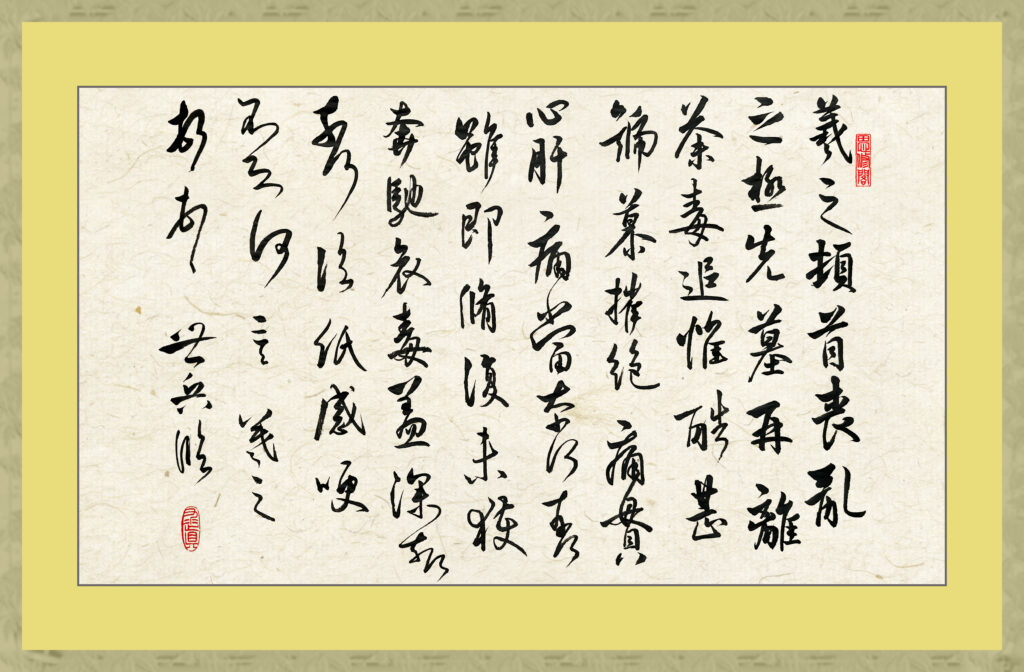 羲之頓首喪亂
之極先墓再離
荼毒追惟酷甚
號慕摧絕痛貫
心肝痛當奈何奈何
雖即脩復未獲
奔馳哀毒益深奈何
奈何臨紙感哽
不知何言羲之
頓首頓首 世兵臨